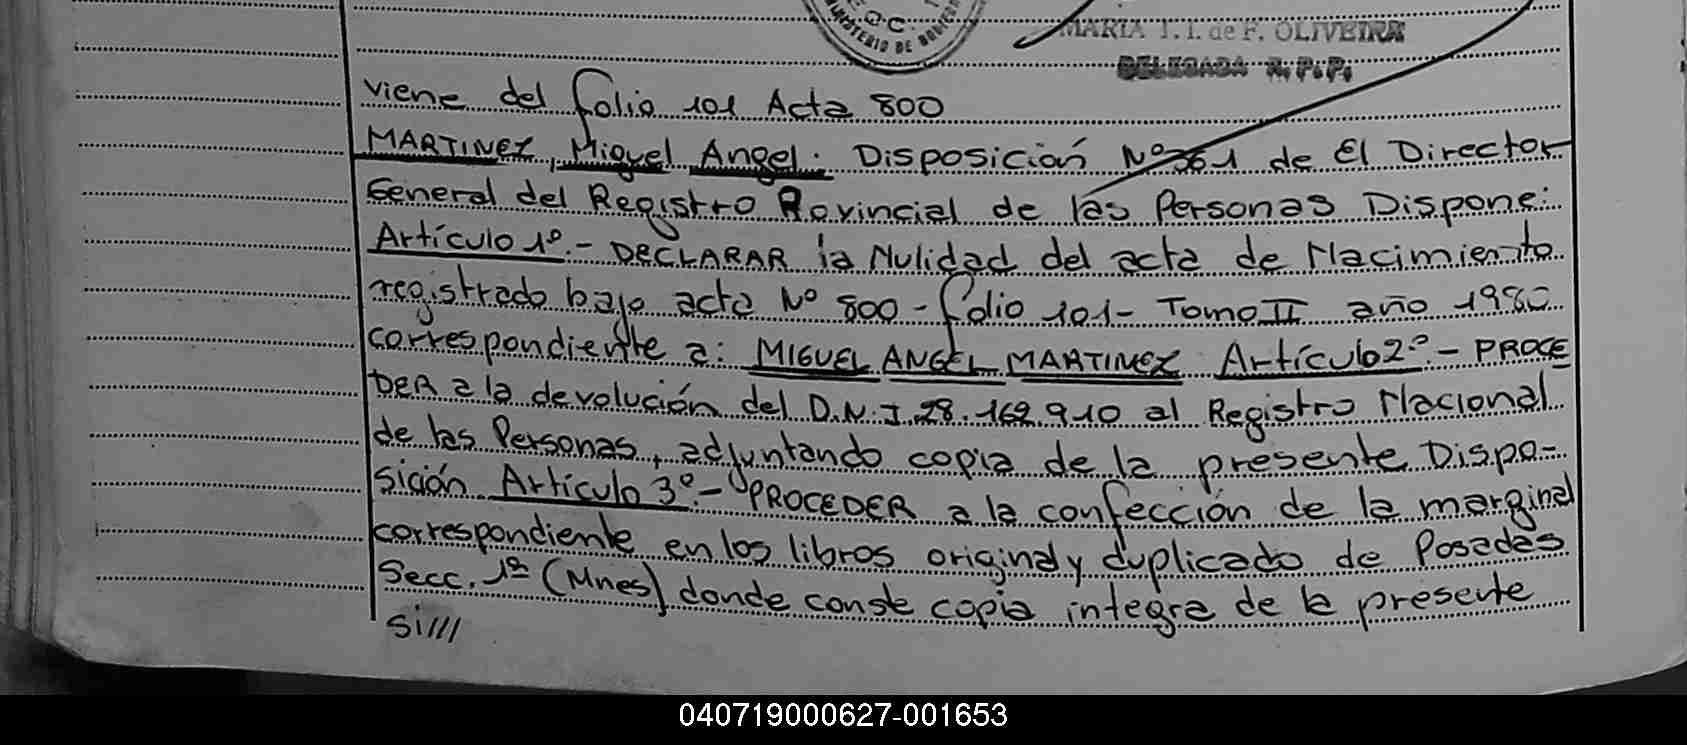 MINISTERIO DE GOBIERNO
MARIA T. I. de F. OLIVEIRA
DELEGADA R. P. P.
viene del folio 101 Acta 800
MARTINEZ, Miguel Angel. Disposición Nº 361 de El Director
General del Registro Provincial de las Personas Dispone:
Artículo 1º.- DECLARAR la Nulidad del acta de Nacimiento
registrado bajo acta Nº 800 - folio 101 - Tomo II año 1980
correspondiente a: MIGUEL ANGEL MARTINEZ Artículo 2º.- PROCE
DER a la devolución del D.N.I. 28.169.910 al Registro Nacional
de las Personas, adjuntando copia de la presente Dispo-
sición Artículo 3º.- PROCEDER a la confección de la marginal
correspondiente en los libros original y duplicado de Posadas
Secc. 1ª (Mnes) donde conste copia integra de la presente
Si////
040719000627-001653